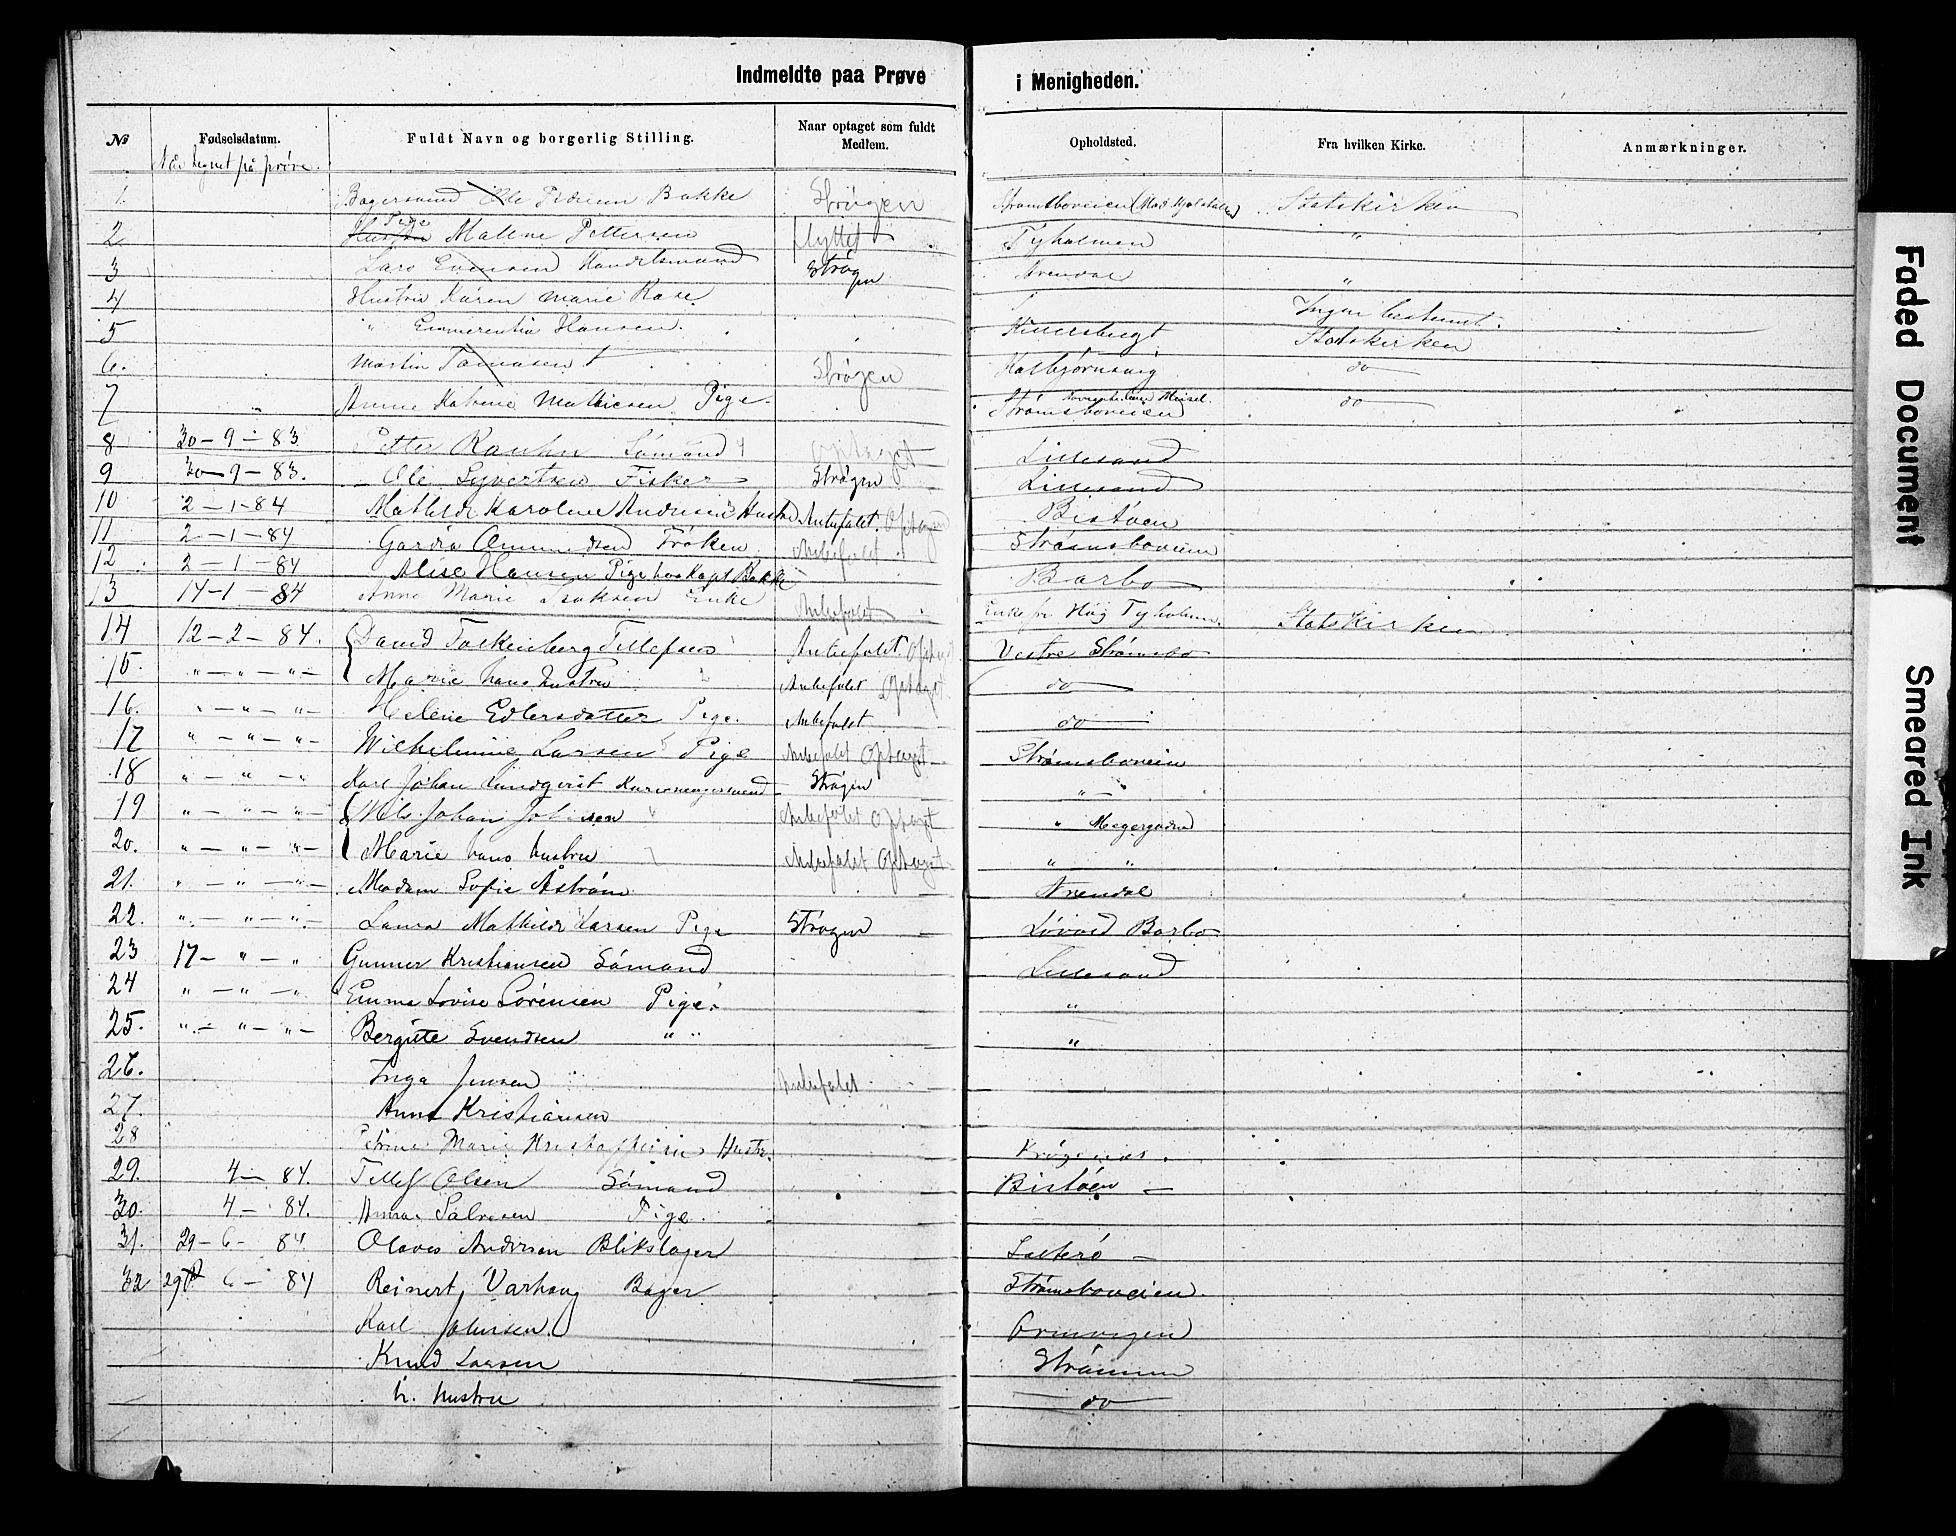 Indmeldte paa Prøve i Menigheden.
№ Fødselsdatum. Fuldt Navn og borgerlig Stilling. Naar optaget som fuldt Medlem. Opholdsted. Fra hvilken Kirke. Anmærkninger.
på prøve.
1 Bagersvend Ole Bakke Strøgen Strømsboveien Statskirken
2 Hustru Pige Maline Pettersen flyttet Tyholmen "
3 Lars Evensen Handelsmand Strøgen Arendal "
4 Hustru Karen Marie Rase Ingen bestemt.
5 " Emmerentia Hansen. Kittelsbugt Statskirken
6. Martin Tomasen Strøgen Hasbjørnsvig do
7 " Anne Mathiesen Pige Strømsboveien do
8 30-9-83. Petter Sømand Optaget Lillesand
9 30-9-83. Ole Syvertsen Fisker Strøgen Lillesand
10 2-1-84 Mathilde Karoline Andersen Hustru Anbefalet. Optaget Bistøen
11 2-1-84 Amundsen Frøken Anbefalet Strømsboveien
12 2-1-84 Alise Hansen Pige hos Kapt Bakke Barbo
13 14-1-84 Anne Marie Isaksen Enke Anbefalet Enkefru Tyholmen. Statskirken
14 12-2-84. David Falkenberg Tellefsen Anbefalet Optaget Vestre Strømsbo
15. "-"-"- Marie hans hustru Anbefalet Optaget do
16. "-"-"- Helene Edlersdatter Pige. Anbefalet do
17 "-"-"- Wilhelmine Larsen Pige Anbefalet Optaget Strømsboveien
18 "-"-"- Karl Johan Lundqvist Strøgen "-"
19 "-"-"- Nils Johan Anbefalet Optaget "
20. "-"-"- Marie hans hustru Anbefalet Optaget " "
21. "-"-"- Madam Sofie Åstrøm Arendal
22. "-"-"- Laura Mathilde Larsen Pige Strøgen Barbo
23 17-"-" Gunner Kristiansen Sømand Lillesand
24 "-"-" Emma Lovise Sørensen Pige. "
25. "-"-"- Bergitte Svendsen " " "
26. Inga Jensen Anbefalet
27. Anna Kristiansen
28 Marie Hustru
29. 4-84. Tellef Olsen Sømand Bistøen
30. 4-84. Anna Salvesen Pige.
31. 29-6-84. Olaves Andersen Blikslager
32 29 6-84 Reinert Varhaug Bager Strømsboveien.
Karl Johnsen.
Knud Larsen Strømmen
h. hustru do
Faded Document
Smeared Ink